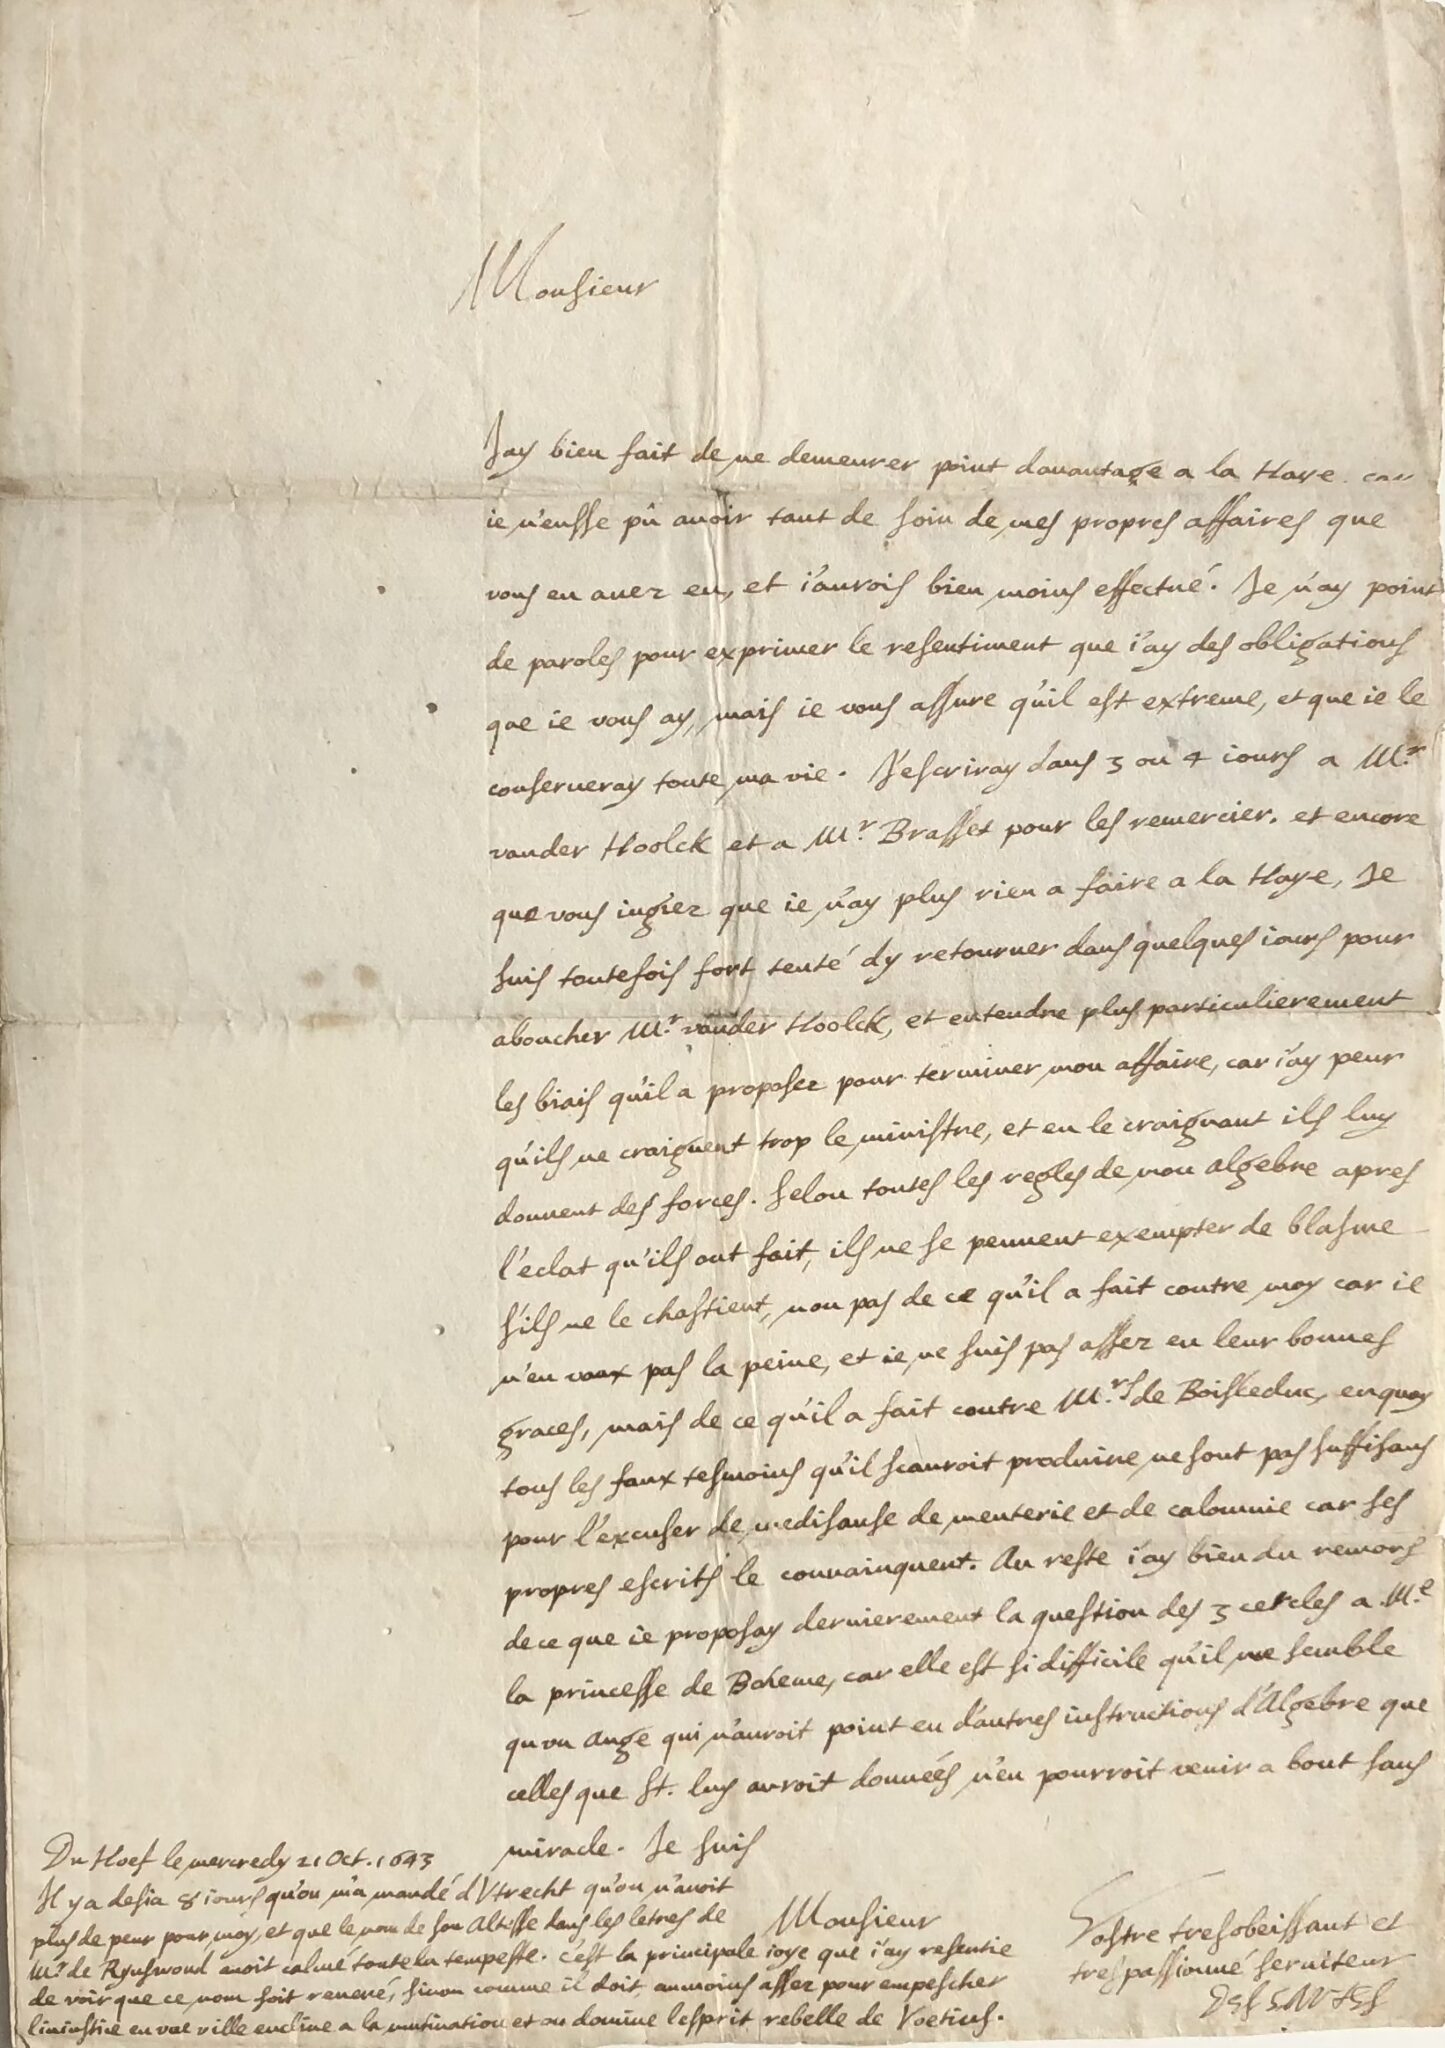 Monsieur
Jay bien fait de ne demeurer point dauantage a la Haye. car
ie n'eusse pû auoir tant de soin de mes propres affaires que
vous en auez eu, et i'aurois bien moins effectué. Je n'ay point
de paroles pour exprimer le resentiment que i'ay des obligations
que ie vous ay, mais ie vous assure qu'il est extreme, et que ie le
conserueray toute ma vie. J'escriray dans 3 ou 4 iours a Mr.
vander Hoolck et a Mr. Brasset pour les remercier. et encore
que vous iugiez que ie n'ay plus rien a faire a la Haye, Je
suis toutefois fort tenté dy retourner dans quelques iours pour
aboucher Mr. vander Hoolck, et entendre plus particulierement
les biais qu'il a proposez pour terminer mon affaire, car i'ay peur
qu'ils ne craignent trop le ministre, et en le craignant ils luy
donnent des forces. selon toutes les regles de mon algebre apres
l'eclat qu'ils ont fait, ils ne se peuuent exempter de blasme
s'ils ne le chastient, non pas de ce qu'il a fait contre moy car ie
n'en vaux pas la peine, et ie ne suis pas assez en leur bonnes
graces, mais de ce qu'il a fait contre Mrs. de Boisleduc, enquoy
tous les faux tesmoins qu'il scauroit produire ne sont pas suffisans
pour l'excuser de medisanse de menterie et de calomnie car ses
propres escrits le conuainquent. Au reste i'ay bien du remors
de ce que ie proposay dernierement la question des 3 cercles a Me.
la princesse de Boheme, car elle est si difficile qu'il me semble
qu'vn Ange qui n'auroit point eu d'autres instructions d'Algebre que
celles que St. luy auroit données n'en pourroit venir a bout sans
miracle. Je suis
Monsieur
Vostre tresobeissant et
trespassionné seruiteur
DESCARTES
Du Hoef le mercredy 21 Oct. 1643
Il y a desia 8 iours qu'on m'a mandé d'Vtrecht qu'on n'auoit
plus de peur pour moy, et que le nom de son Altesse dans les letres de
Mr. de Rynswoud auoit calmé toute la tempeste. c'est la principale ioye que i'ay resentie
de voir que ce nom soit reueré, sinon comme il doit, aumoins assez pour empescher
l'iniustice en vne ville encline a la mutination et ou domine l'esprit rebelle de Voetius.